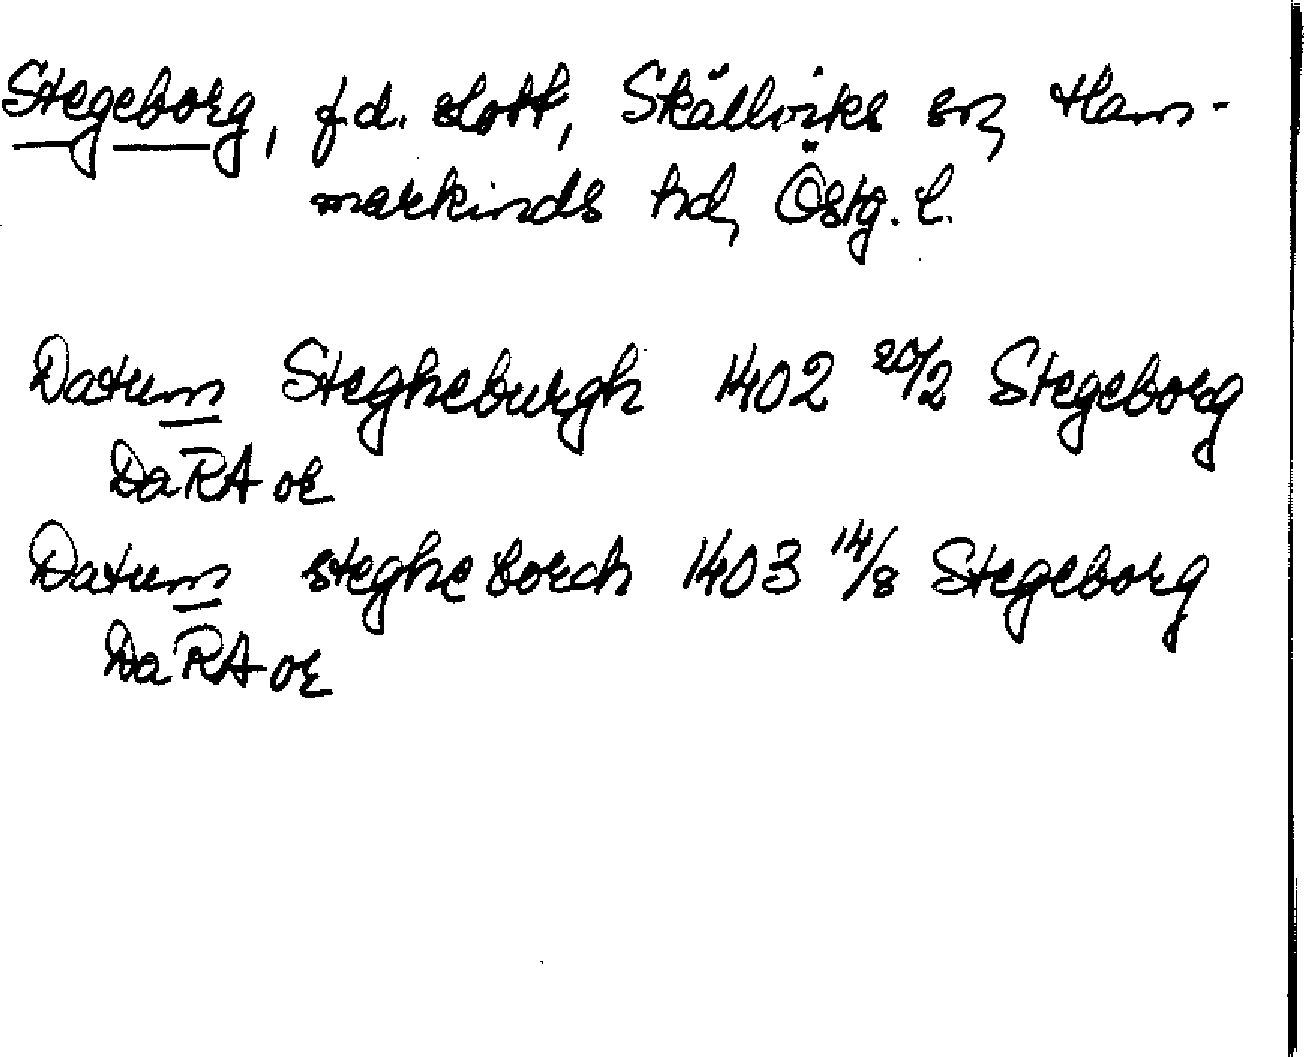 Stegeborg, f.d. slott, Skällviks sn, Ham-
markinds hd, Östg. l.
Datum Stegheburgh 1402 20/2 Stegeborg
DaRA or
Datum steghe borch 1403 14/8 Stegeborg
DaRA or